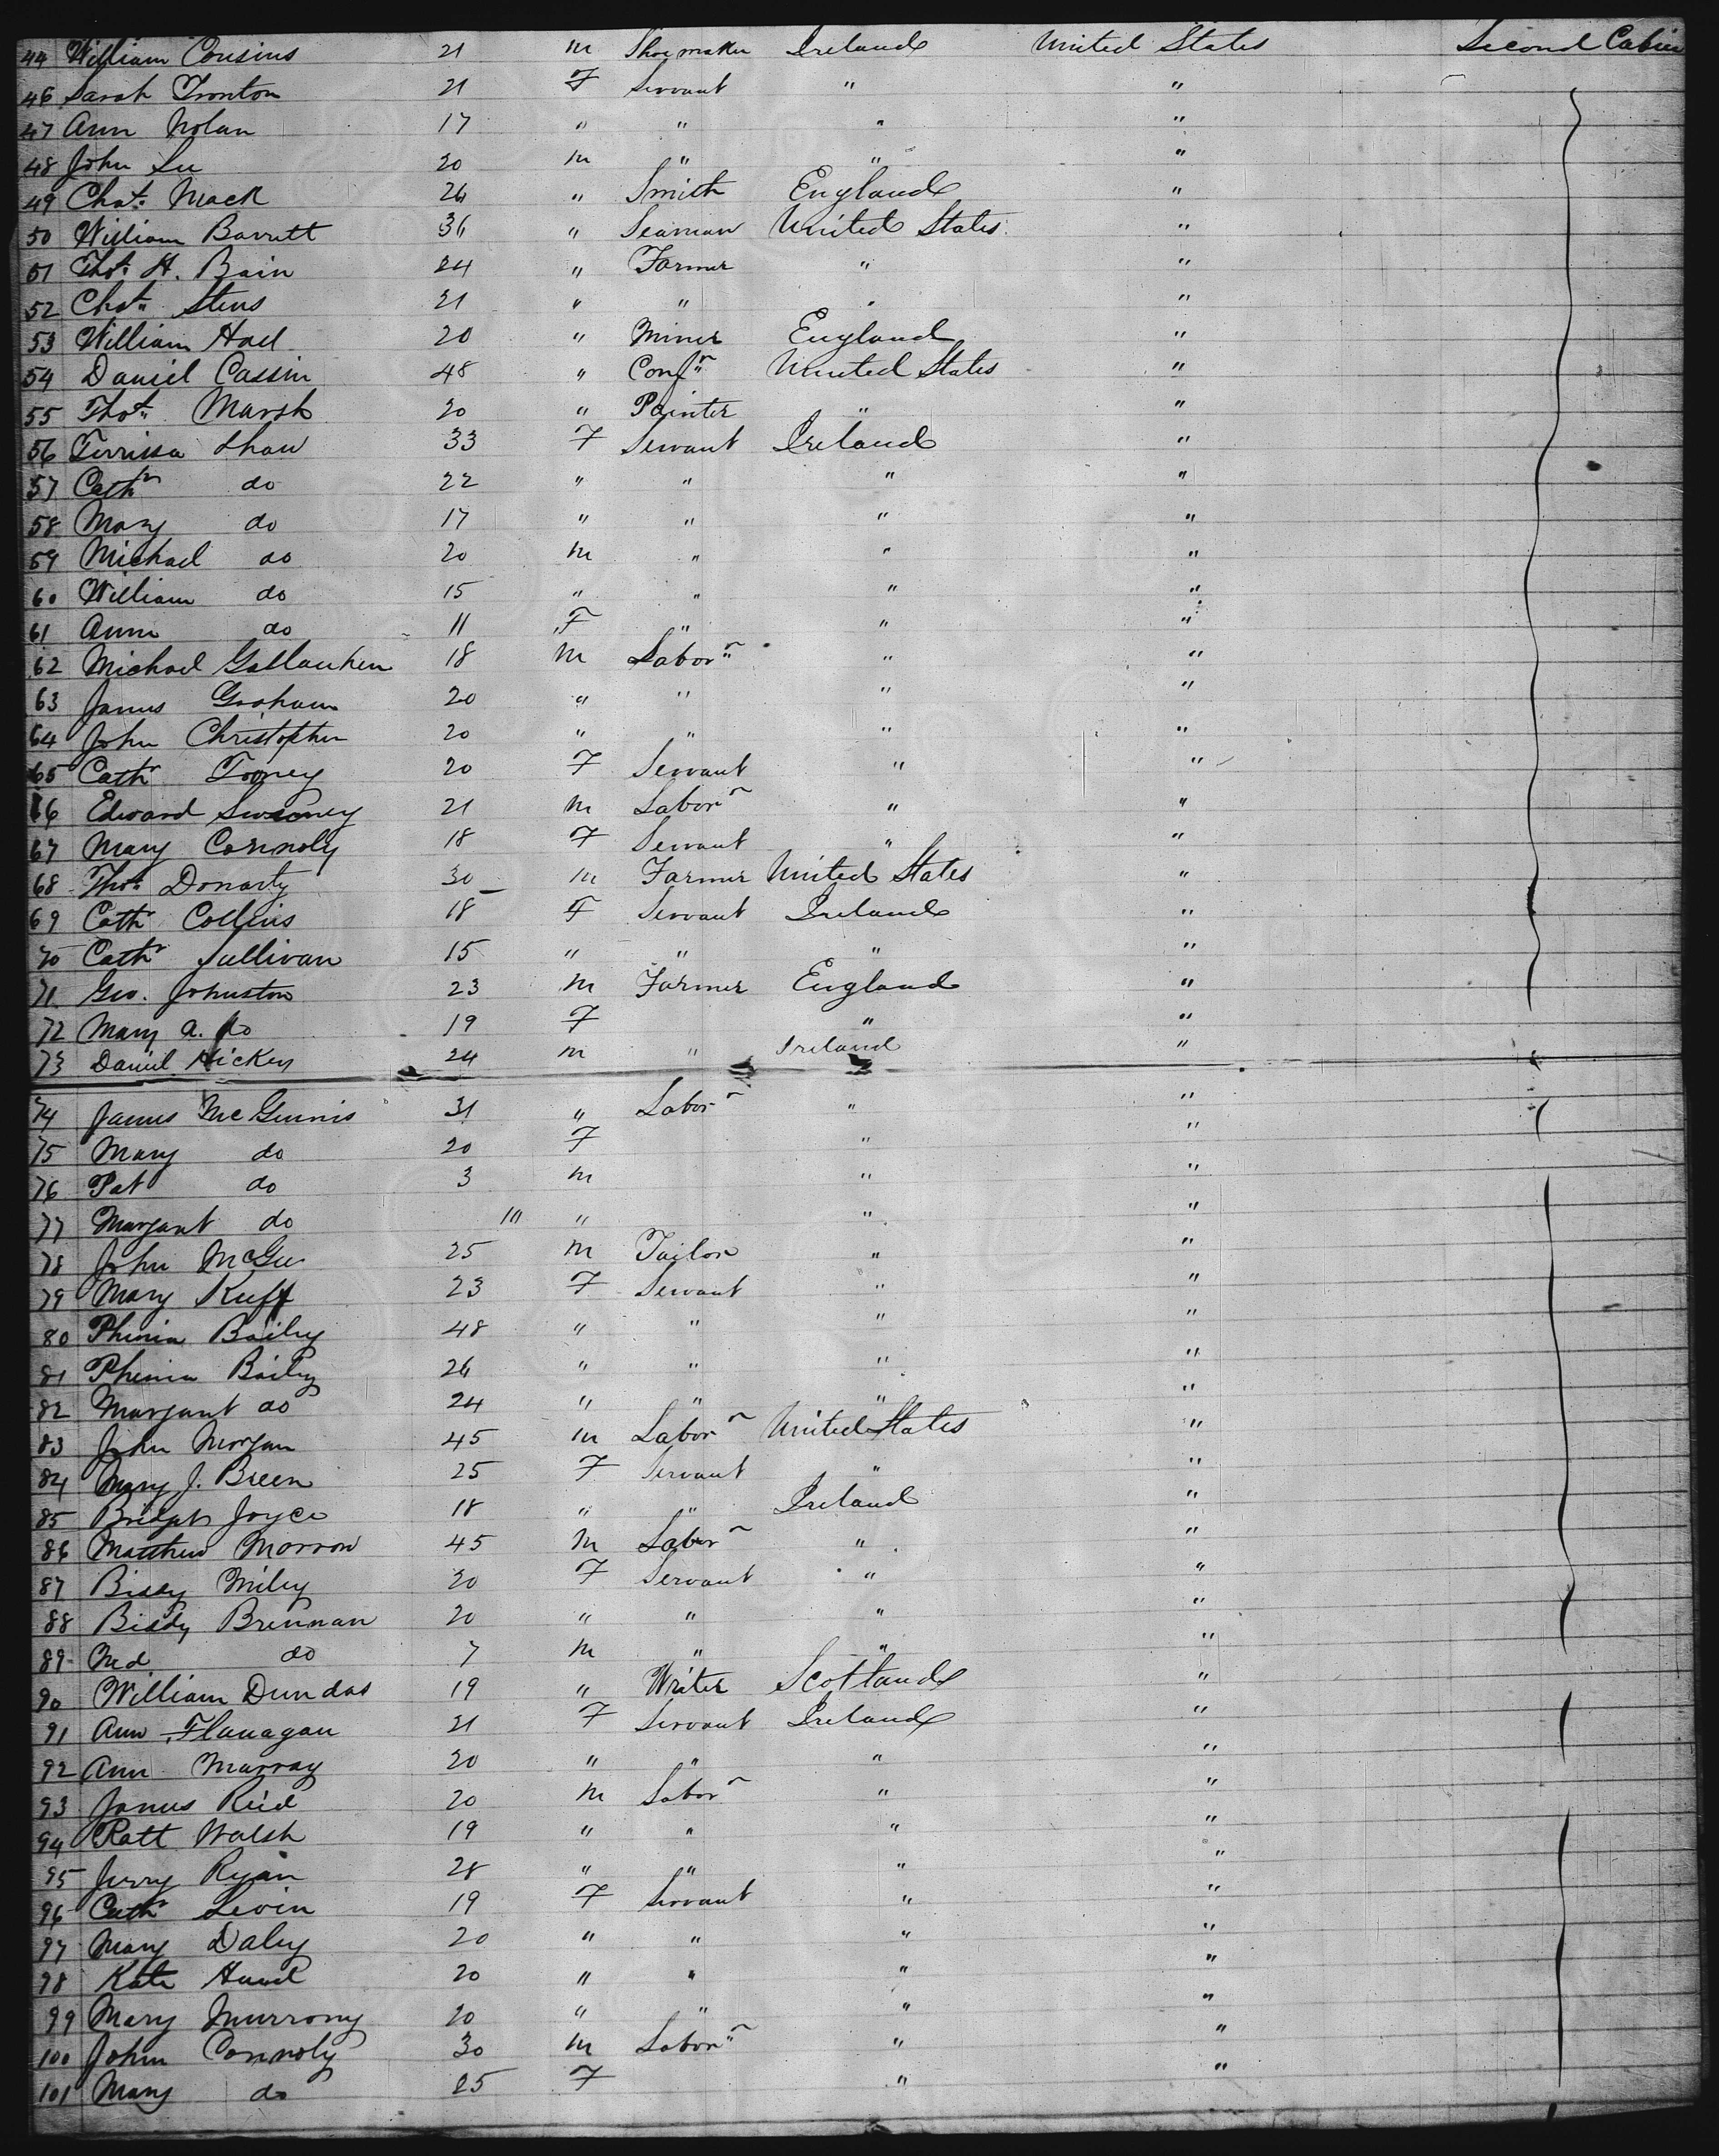 44 William Cousins 21 m Shoemaker Ireland United States Second Cabin
46 Sarah Tronton 21 F Servant " "
47 Ann Nolan 17 " " " "
48 John Lee 20 m " " "
49 Chas. Mack 26 " Smith England "
50 William Barrett 36 " Seaman United States "
51 Thos. H. Bain 24 " Farmer " "
52 Chas. Stens 21 " " " "
53 William Hall 20 " Miner England "
54 Daniel Cassin 48 " Confr United States "
55 Thos. Marsh 20 " Painter " "
56 Terrissa Shaw 33 F Servant Ireland "
57 Cathn do 22 " " " "
58 Mary do 17 " " " "
59 Michael do 20 m " " "
60 William do 15 " " " "
61 Ann do 11 F " " "
62 Michael Gallauhen 18 m Labor " "
63 James Graham 20 " " " "
64 John Christopher 20 " " " "
65 Cathr Tooney 20 F Servant " "
66 Edward Sweeney 21 m Labor " "
67 Mary Connoly 18 F Servant " "
68 Thos. Donarty 30 m Farmer United States "
69 Cathr Collins 18 F Servant Ireland "
70 Cathr Sullivan 15 " " " "
71 Geo. Johnston 23 m Farmer England "
72 Mary A. do 19 F " "
73 Daniel Hickey 24 m " Ireland "
74 James McGinnis 31 " Labor " "
75 Mary do 20 F " "
76 Pat do 3 m " "
77 Margaret do 10 " " "
78 John McGee 25 m Tailor " "
79 Mary Kuff 23 F Servant " "
80 Phinia Bailey 48 " " " "
81 Phinia Bailey 26 " " " "
82 Margaret do 24 " " " "
83 John Morgan 45 m Labor United States "
84 Mary J. Breen 25 F Servant " "
85 Bridget Joyce 18 " " Ireland "
86 Matthew Morrow 45 m Labor " "
87 Biddy Miley 20 F Servant " "
88 Biddy Brennan 20 " " " "
89 Ned do 7 m " " "
90 William Dundas 19 " Writer Scotland "
91 Ann Flanagan 21 F Servant Ireland "
92 Ann Murray 20 " " " "
93 James Reid 20 m Labor " "
94 Patt Walsh 19 " " " "
95 Jerry Ryan 28 " " " "
96 Cathr Levin 19 F Servant " "
97 Mary Daley 20 " " " "
98 Kate Hund 20 " " " "
99 Mary Murrony 20 " " " "
100 John Connoly 30 m Labor " "
101 Mary do 25 F " "